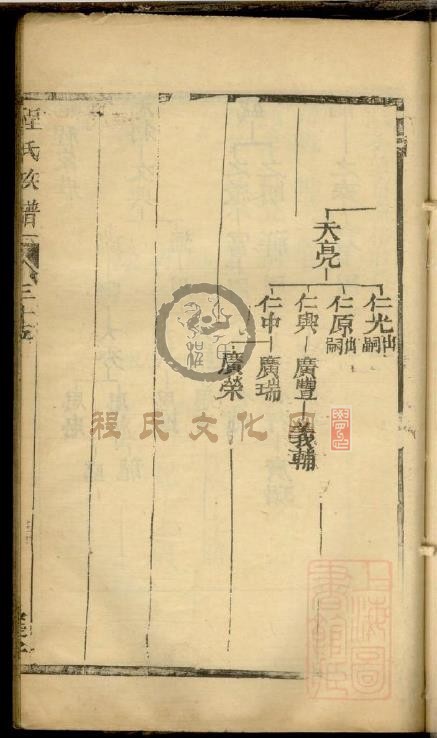 天亮
仁光出嗣
仁原出嗣
仁興 廣豐 義輔
仁中 廣瑞
廣榮
程氏族譜
程氏文化
上海圖書館藏